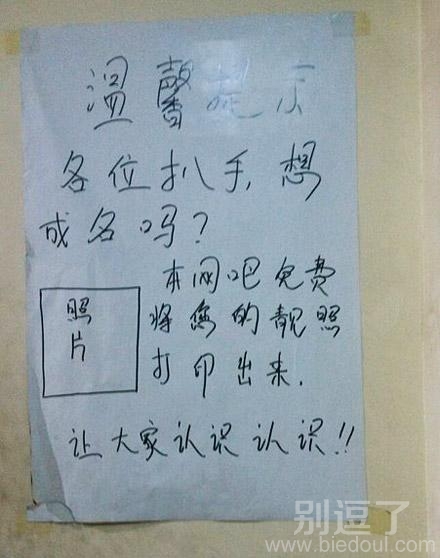 温馨提示
各位扒手,想
成名吗?
本网吧免费
将您的靓照
打印出来.
照
片
让大家认识认识!!
别逗了
www.biedoul.com